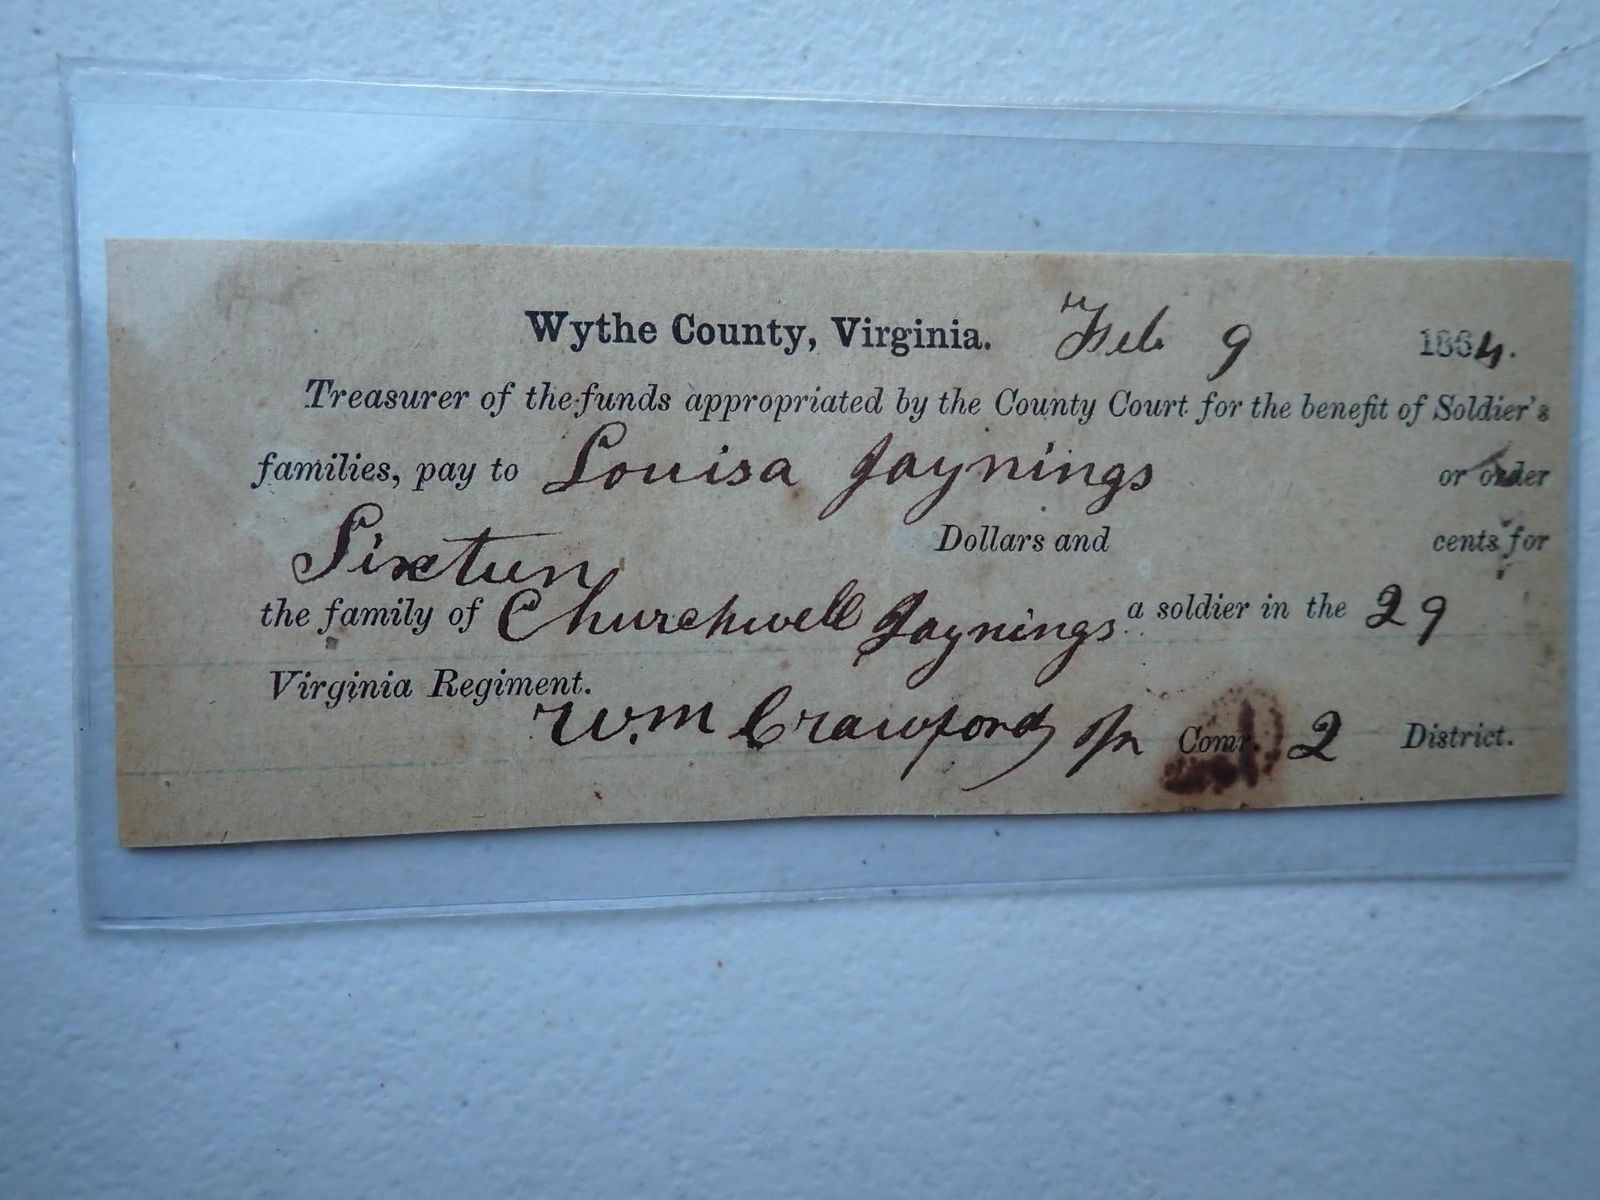 Wythe County, Virginia. Feb 9 1864.
Treasurer of the funds appropriated by the County Court for the benefit of Soldier's
families, pay to Louisa Jaynings or order
Sixteen Dollars and cents for
the family of Churchwell Jaynings a soldier in the 29
Virginia Regiment.
Wm Crawford Jr Comr. 2 District.